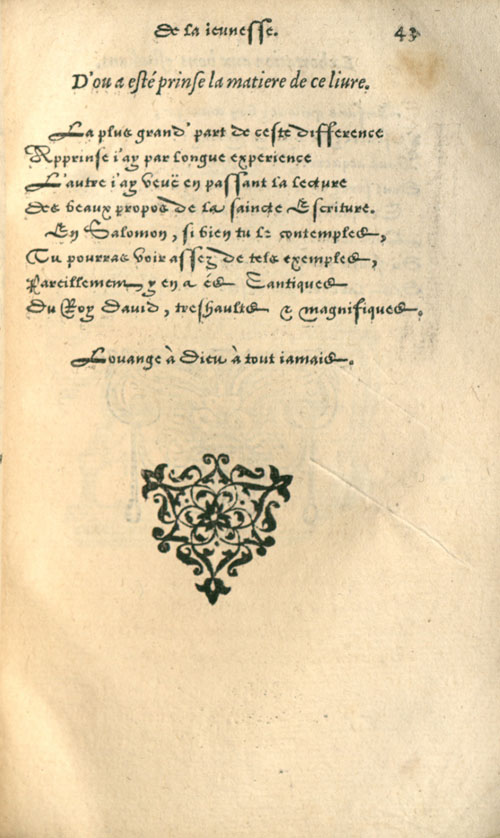 de la ieunesse. 43
D'ou a esté prinse la matiere de ce liure.
La plus grand' part de ceste difference
Apprinse i'ay par longue experience
L'autre i'ay veuë en passant la lecture
des beaux propos de la saincte Escriture.
En Salomon, si bien tu le contemples,
Tu pourras voir assez de tels exemples,
Pareillement y en a és Cantiques
du Roy David, treshaults & magnifiques.
Louange à Dieu à tout iamais.